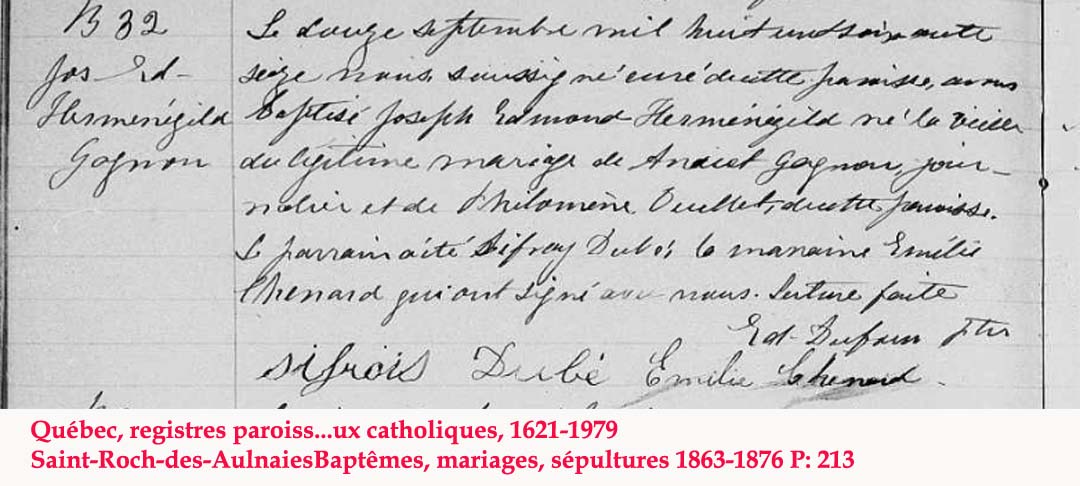 B 32
Jos Ed-
Herménégild
Gagnon
Le douze septembre mil huit cent soixante
seize nous soussigné curé de cette paroisse, avons
Baptisé Joseph Edmond Herménégild né la veille
du légitime mariage de Anaclet Gagnon, jour-
nalier et de Philomène Ouellet, de cette paroisse.
Le parrain a été Sifroy Dubé, la marraine Emilie
Chenard qui ont signé avec nous. Lecture faite
Ed. Dufour Ptre
Sifrois Dubé Emilie Chenard.
Québec, registres paroiss...ux catholiques, 1621-1979
Saint-Roch-des-AulnaiesBaptêmes, mariages, sépultures 1863-1876 P: 213